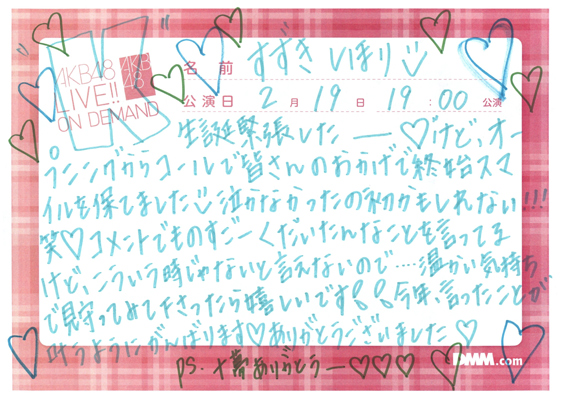 AKB48
LIVE!!
ON DEMAND
AKB
48
名前 すずきしほり
公演日 2月19日 19:00 公演
生誕緊張したー♡けど、オー
プニングからコールで皆さんのおかげで終始スマ
イルを保てました 泣かなかったの初かもしれない!!!
笑♡コメントでものすごーくだいたんなことを言ってる
けど、こういう時じゃないと言えないので‥‥温かい気持ち
で見守ってみて下さったら嬉しいです 今年、言ったことが
叶うようにがんばります♡ありがとうございました♡
PS. ありがとうー♡♡♡
DMM.com